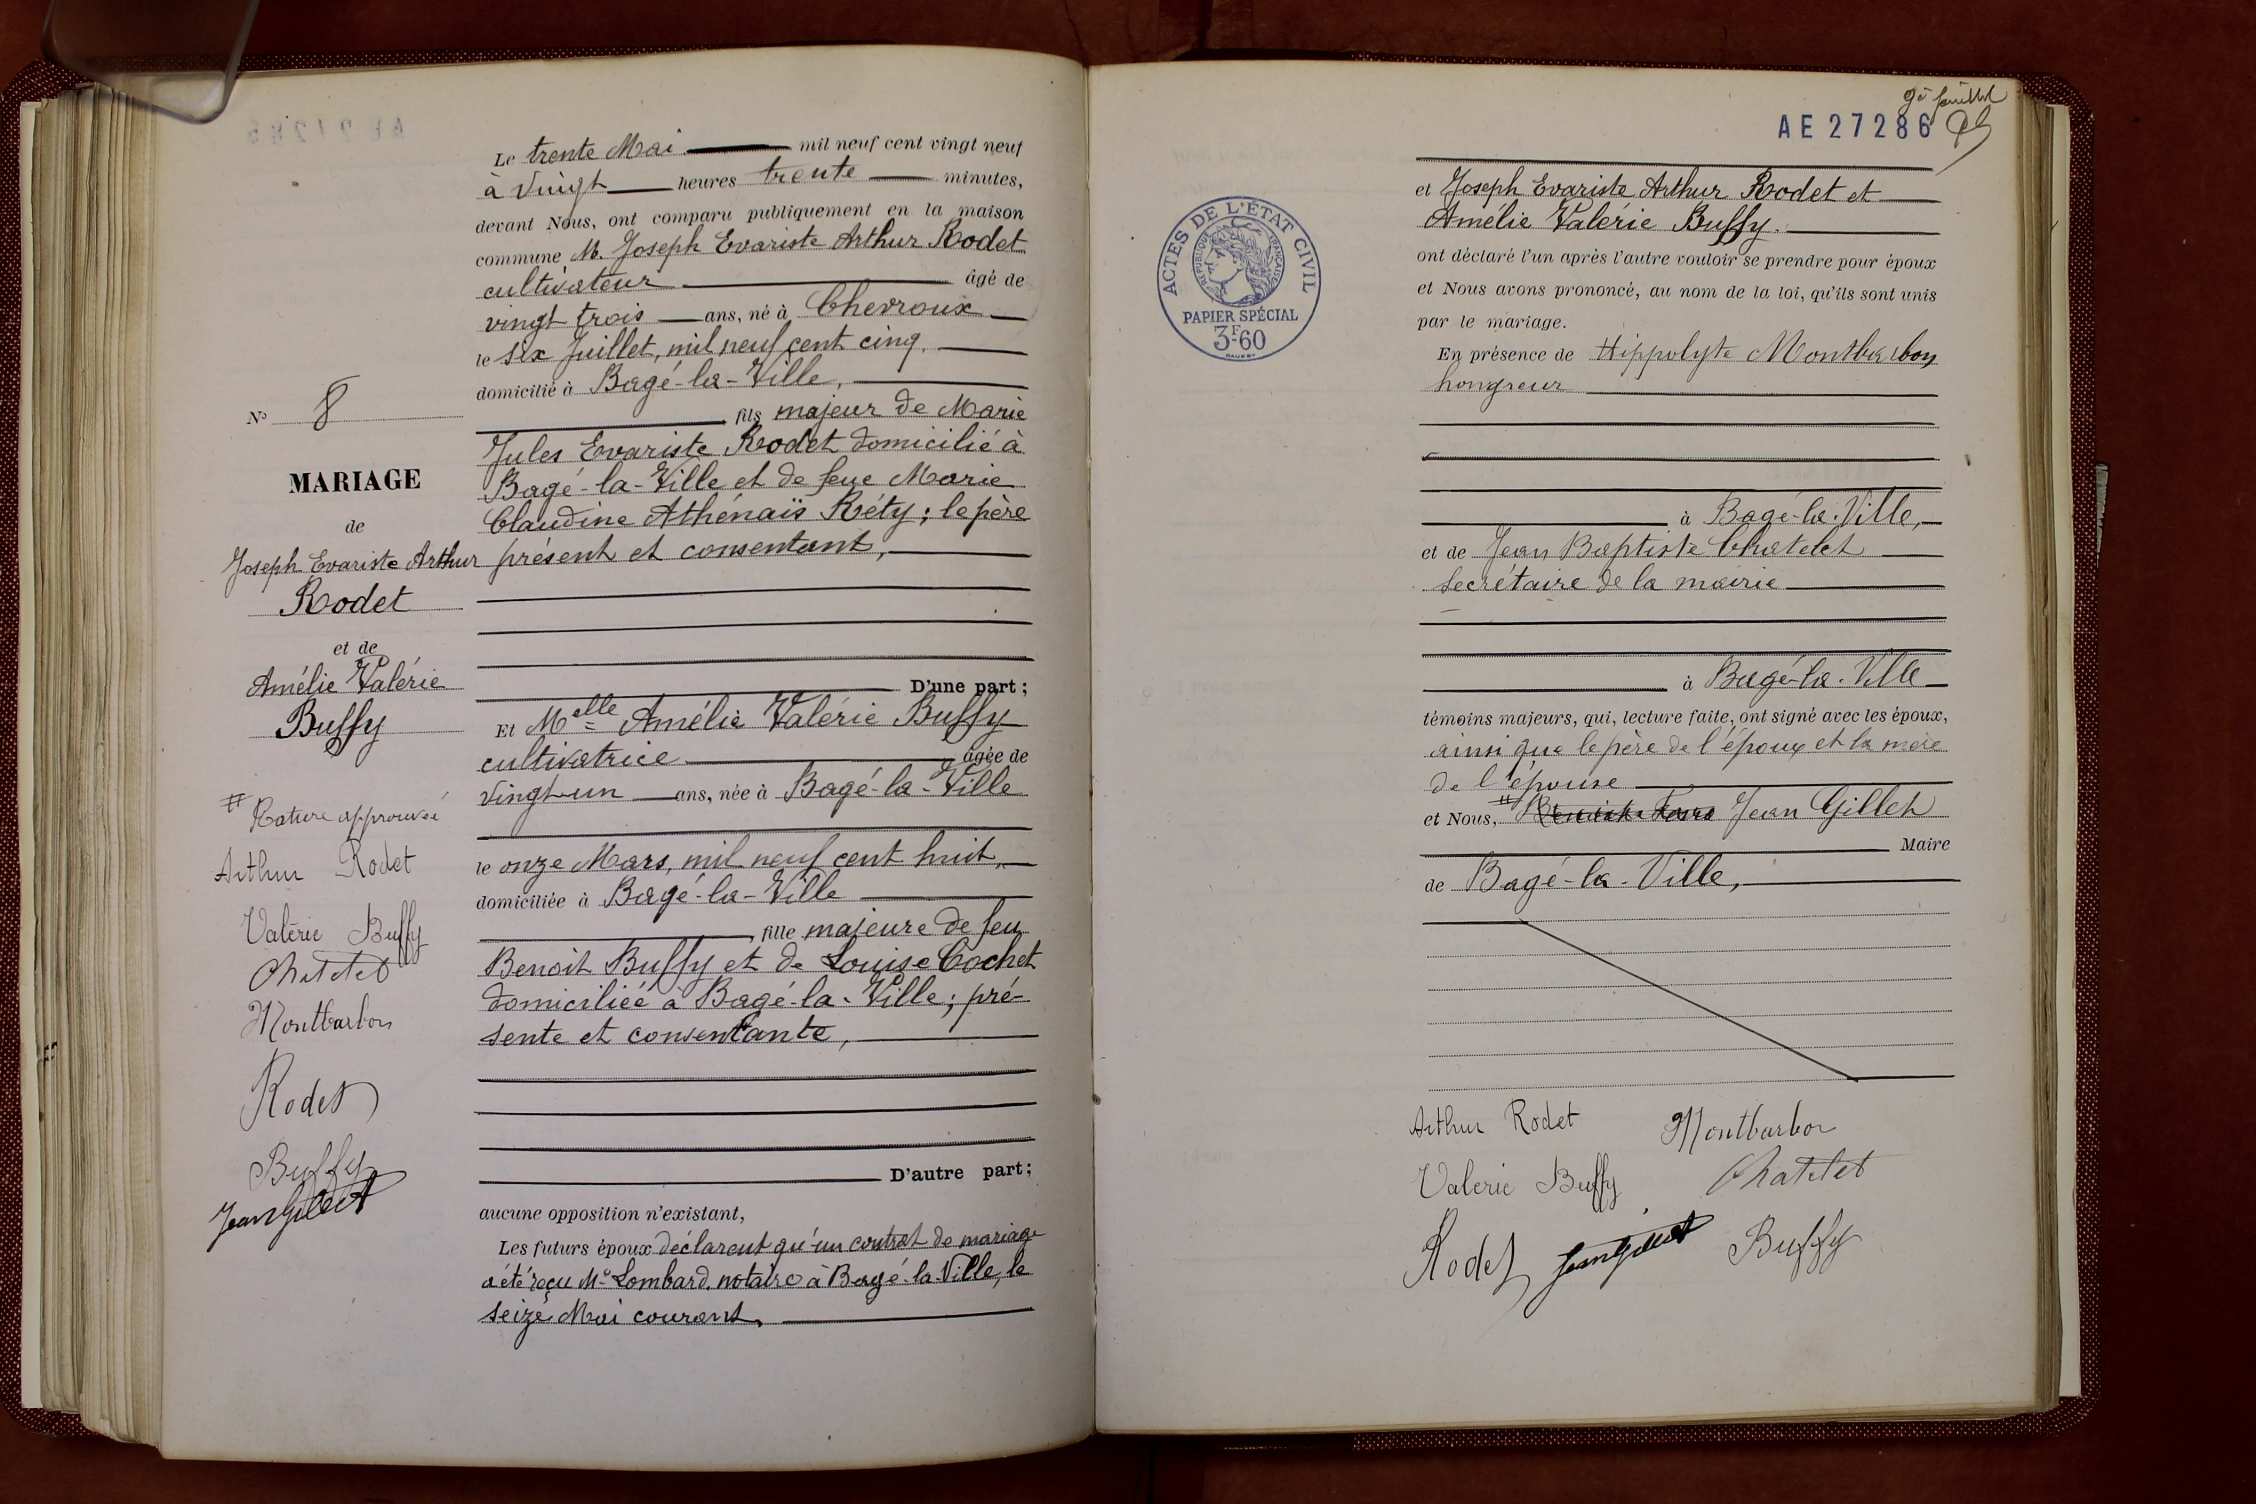 Le trente Mai mil neuf cent vingt neuf
à vingt heures trente minutes,
devant Nous, ont comparu publiquement en la maison
commune M. Joseph Evariste Arthur Rodet
cultivateur âgé de
vingt trois ans, né à Chevroux
le six Juillet, mil neuf cent cinq,
domicilié à Bagé-la-Ville,
fils majeur de Marie
Jules Evariste Rodet domicilié à
Bagé-la-Ville et de feue Marie
Claudine Athénaïs Réty ; le père
présent et consentant,
D'une part ;
Et Melle Amélie Valérie Buffy
cultivatrice âgée de
vingt-un ans, née à Bagé-la-Ville
le onze Mars, mil neuf cent huit,
domiciliée à Bagé-la-Ville
fille majeure de feu
Benoit Buffy et de Louise Cochet
domiciliée à Bagé-la-Ville ; pré-
sente et consentante,
D'autre part ;
aucune opposition n'existant,
Les futurs époux déclarent qu'un contrat de mariage
a été reçu Me Lombard notaire à Bagé-la-Ville, le
seize Mai courant.
No 8
MARIAGE
de
Joseph Evariste Arthur
Rodet
et de
Amélie Valérie
Buffy
# Rature approuvée
Arthur Rodet
Valérie Buffy
Chatelet
Montbarbon
Rodet
Buffy
Jean Gillet
9è feuillet
AE 27286
ACTES DE L'ÉTAT CIVIL
RÉPUBLIQUE FRANÇAISE
PAPIER SPÉCIAL
3F60
et Joseph Evariste Arthur Rodet et
Amélie Valérie Buffy.
ont déclaré l'un après l'autre vouloir se prendre pour époux
et Nous avons prononcé, au nom de la loi, qu'ils sont unis
par le mariage.
En présence de Hippolyte Montbarbon
hongreur
à Bagé-la-Ville,
et de Jean Baptiste Chatelet
secrétaire de la mairie
à Bagé-la-Ville
témoins majeurs, qui, lecture faite, ont signé avec les époux,
ainsi que le père de l'époux et la mère
de l'épouse
et Nous, # Jean Gillet
Maire
de Bagé-la-Ville,
Arthur Rodet Montbarbon
Valerie Buffy Chatelet
Rodet Jean Gillet Buffy